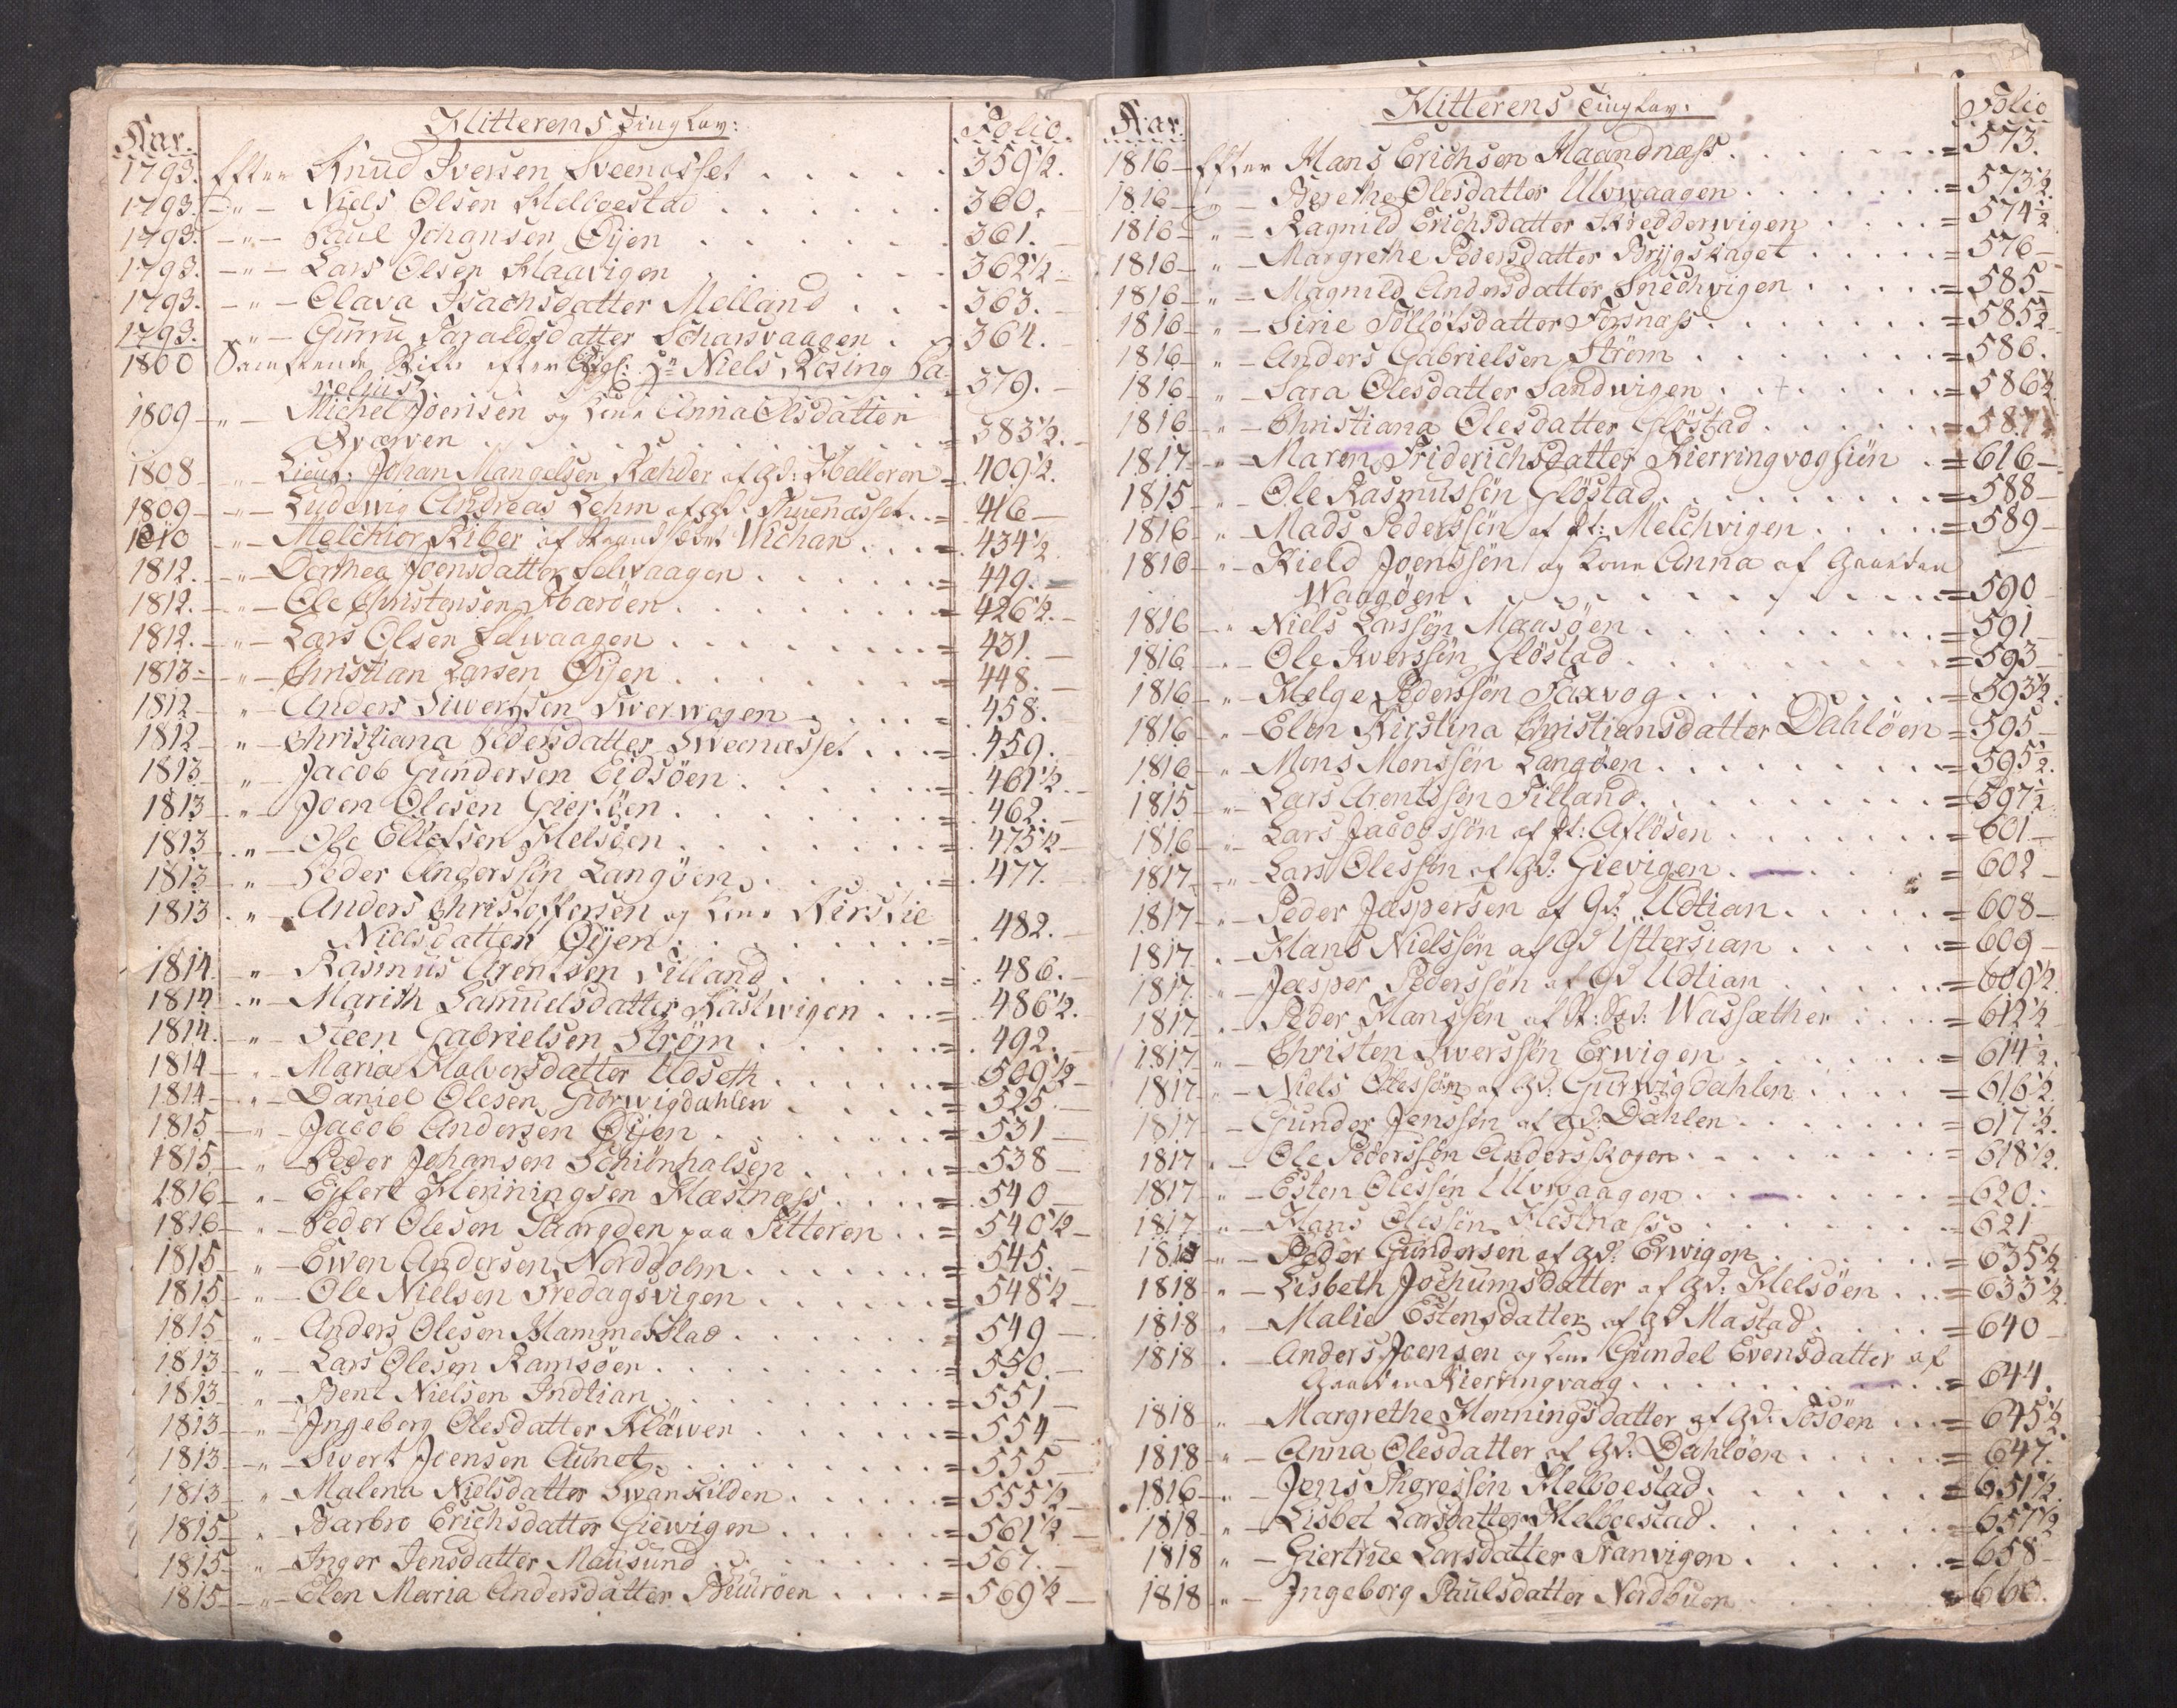 Hitterens Tinglav:
Aar. Folio.
1793. Efter Knud Iversen Sveenasset 359½.
1793. -"- Niels Olsen Helboestad 360.
1793. -"- Paul Johansen Öijen 361.
1793. -"- Lars Olsen Haavigen 362½
1793. -"- Olava Isachsdatter Melland 363.
1793. -"- Gurru Taraldsdatter 364.
1800 efter Niels Rosing
379.
1809 -"- Michel Joensen og Kone Anna Olsdatter
Qværven = 383½.
1808 Lieut: Johan Mangelsen Ræhder af Gd: Helleren = 409½.
1809 -"- Ludewig Andreas Lehm af Gd. = 416
1810 -"- Melchior Riber af Wichan = 434½
1812. -"- Dorthea Joensdatter Selvaagen = 449.
1812. -"- Ole Christensen = 426½.
1812. -"- Lars Olsen Selvaagen = 431.
1813 -"- Christian Larsen Öijen = 448.
1812 " Anders Siwertsen Swerwogen = 458.
1812 " Christiana Pedersdatter Sweenæsset = 459.
1813 " Jacob Gundersen Eidsöen = 461½
1813 " Joen Olesen = 462.
1813 " Ole Ellefsen Helsöen = 475½
1813 " Peder Anderssön Langöen = 477.
1813 " Anders Christoffersen og Kone Kirstie
Nielsdatter Öijen = 482.
1814 " Rasmus Arentsen Filland = 486.
1814 " Marith Samuelsdatter = 486½.
1814. " Steen Gabrielsen Ström = 492.
1814 " Maria Halvorsdatter Udseth = 509½
1814 " Daniel Olesen Gurwigdahlen = 525.
1815 " Jacob Andersen Öijen = 531
1815 " Peder Johansen Schiönhalsen = 538
1816 " Ejlert Henningsen Hæstnæss = 540
1816 " Peder Olesen paa = 540½
1815 " Ewen Andersen Nordholm = 545.
1815 " Ole Nielsen Fredagsvigen = 548½
1815 " Anders Olesen Hammerstad = 549
1813 " Lars Olesen Ramsöen = 550.
1813 " Bent Nielsen Indtian = 551
1813 " Ingeborg Olesdatter Kläwen = 554
1813 " Siwert Joensen Aunet = 555
1813 " Malena Nielsdatter Swanskilden = 555½
1815 " Barbro Erichsdatter Giewigen = 561½
1815 " Inger Jensdatter Mausund = 567.
1815 " Elen Maria Andersdatter = 569½
Hitterens Tinglav:
Aar. Folio
1816 Efter Hans Erichsen Haandnæss = 573.
1816 " Berethe Olesdatter Ulvwaagen = 573½
1816 " Ragnild Erichsdatter Skredderwigen = 574½
1816 " Margrethe Pedersdatter Brygshaget = 576
1816 " Magnild Andersdatter Snechvigen = 585
1816 " Sirie Töllöfsdatter Forsnæss = 585½
1816 " Anders Gabrielsen Ström = 586.
1816 " Sara Olesdatter Sandwigen = 586½
1816 " Christiana Olesdatter Glöstad = 587
1817 " Maren Friderichsdatter Kierringvogsiön = 616
1815 " Ole Rasmussön Glöstad = 588
1816 " Mads Pederssön af Melchvigen = 589
1816 " Kield Joenssön og Kone Anna af Gaarden
Waagöen = 590
1816 " Niels Larssön Maasöen = 591
1816 " Ole Iwerssön Glöstad = 593
1816 " Helge Pederssön Faxvog = 593½
1816 " Elen Kirstina Christiansdatter Dahlöen = 595
1816 " Mons Monssön Langöen = 595½
1815 " Lars Arentssön Filland = 597½
1816 " Lars Jacobssön af Aflösen = 601
1817 " Lars Olessön af Gd: Gievigen = 602
1817 " Peder Jespersen af Gd: Udtian = 608
1817 Hans Nielssön af Gd Yttersian = 609
1817 " Jesper Pederssön af Gd Udtian = 609½
1817 " Peder Hanssön af Wassæther = 612½
1817 " Christen Iwerssön Erwigen = 614½
1817 " Niels Olessön af Gd: Gurwigdahlen = 616½
1817 Gunder Jenssön af Gd: Dahlen = 617½
1817 " Ole Pederssön Andersskogen = 618½
1817 " Esten Olessön Ulvwaagen = 620.
1817 " Hans Olessön Hestnæss = 621
1818 " Peder Gundersen af Gd: Erwigen = 635½
1818 " Lisbeth Jochumsdatter af Gd: Helsöen = 633½
1818 " Malie Estensdatter af Gd Mastad = 640
1818 . Anders Joensen og Kone Gundel Evensdatter af
Gaarden Kierringvaag = 644.
1818 " Margrethe Henningsdatter af Gd: = 645½
1818 " Anna Olesdatter af Gd: Dahlöen = 647.
1816 " Jens Thoressön Helboestad = 651½
1818 " Lisbet Larsdatter Helboestad = 657½
1818 " Giertrue Larsdatter Tranvigen = 658
1818 " Ingeborg Paulsdatter Nordbuen = 660.